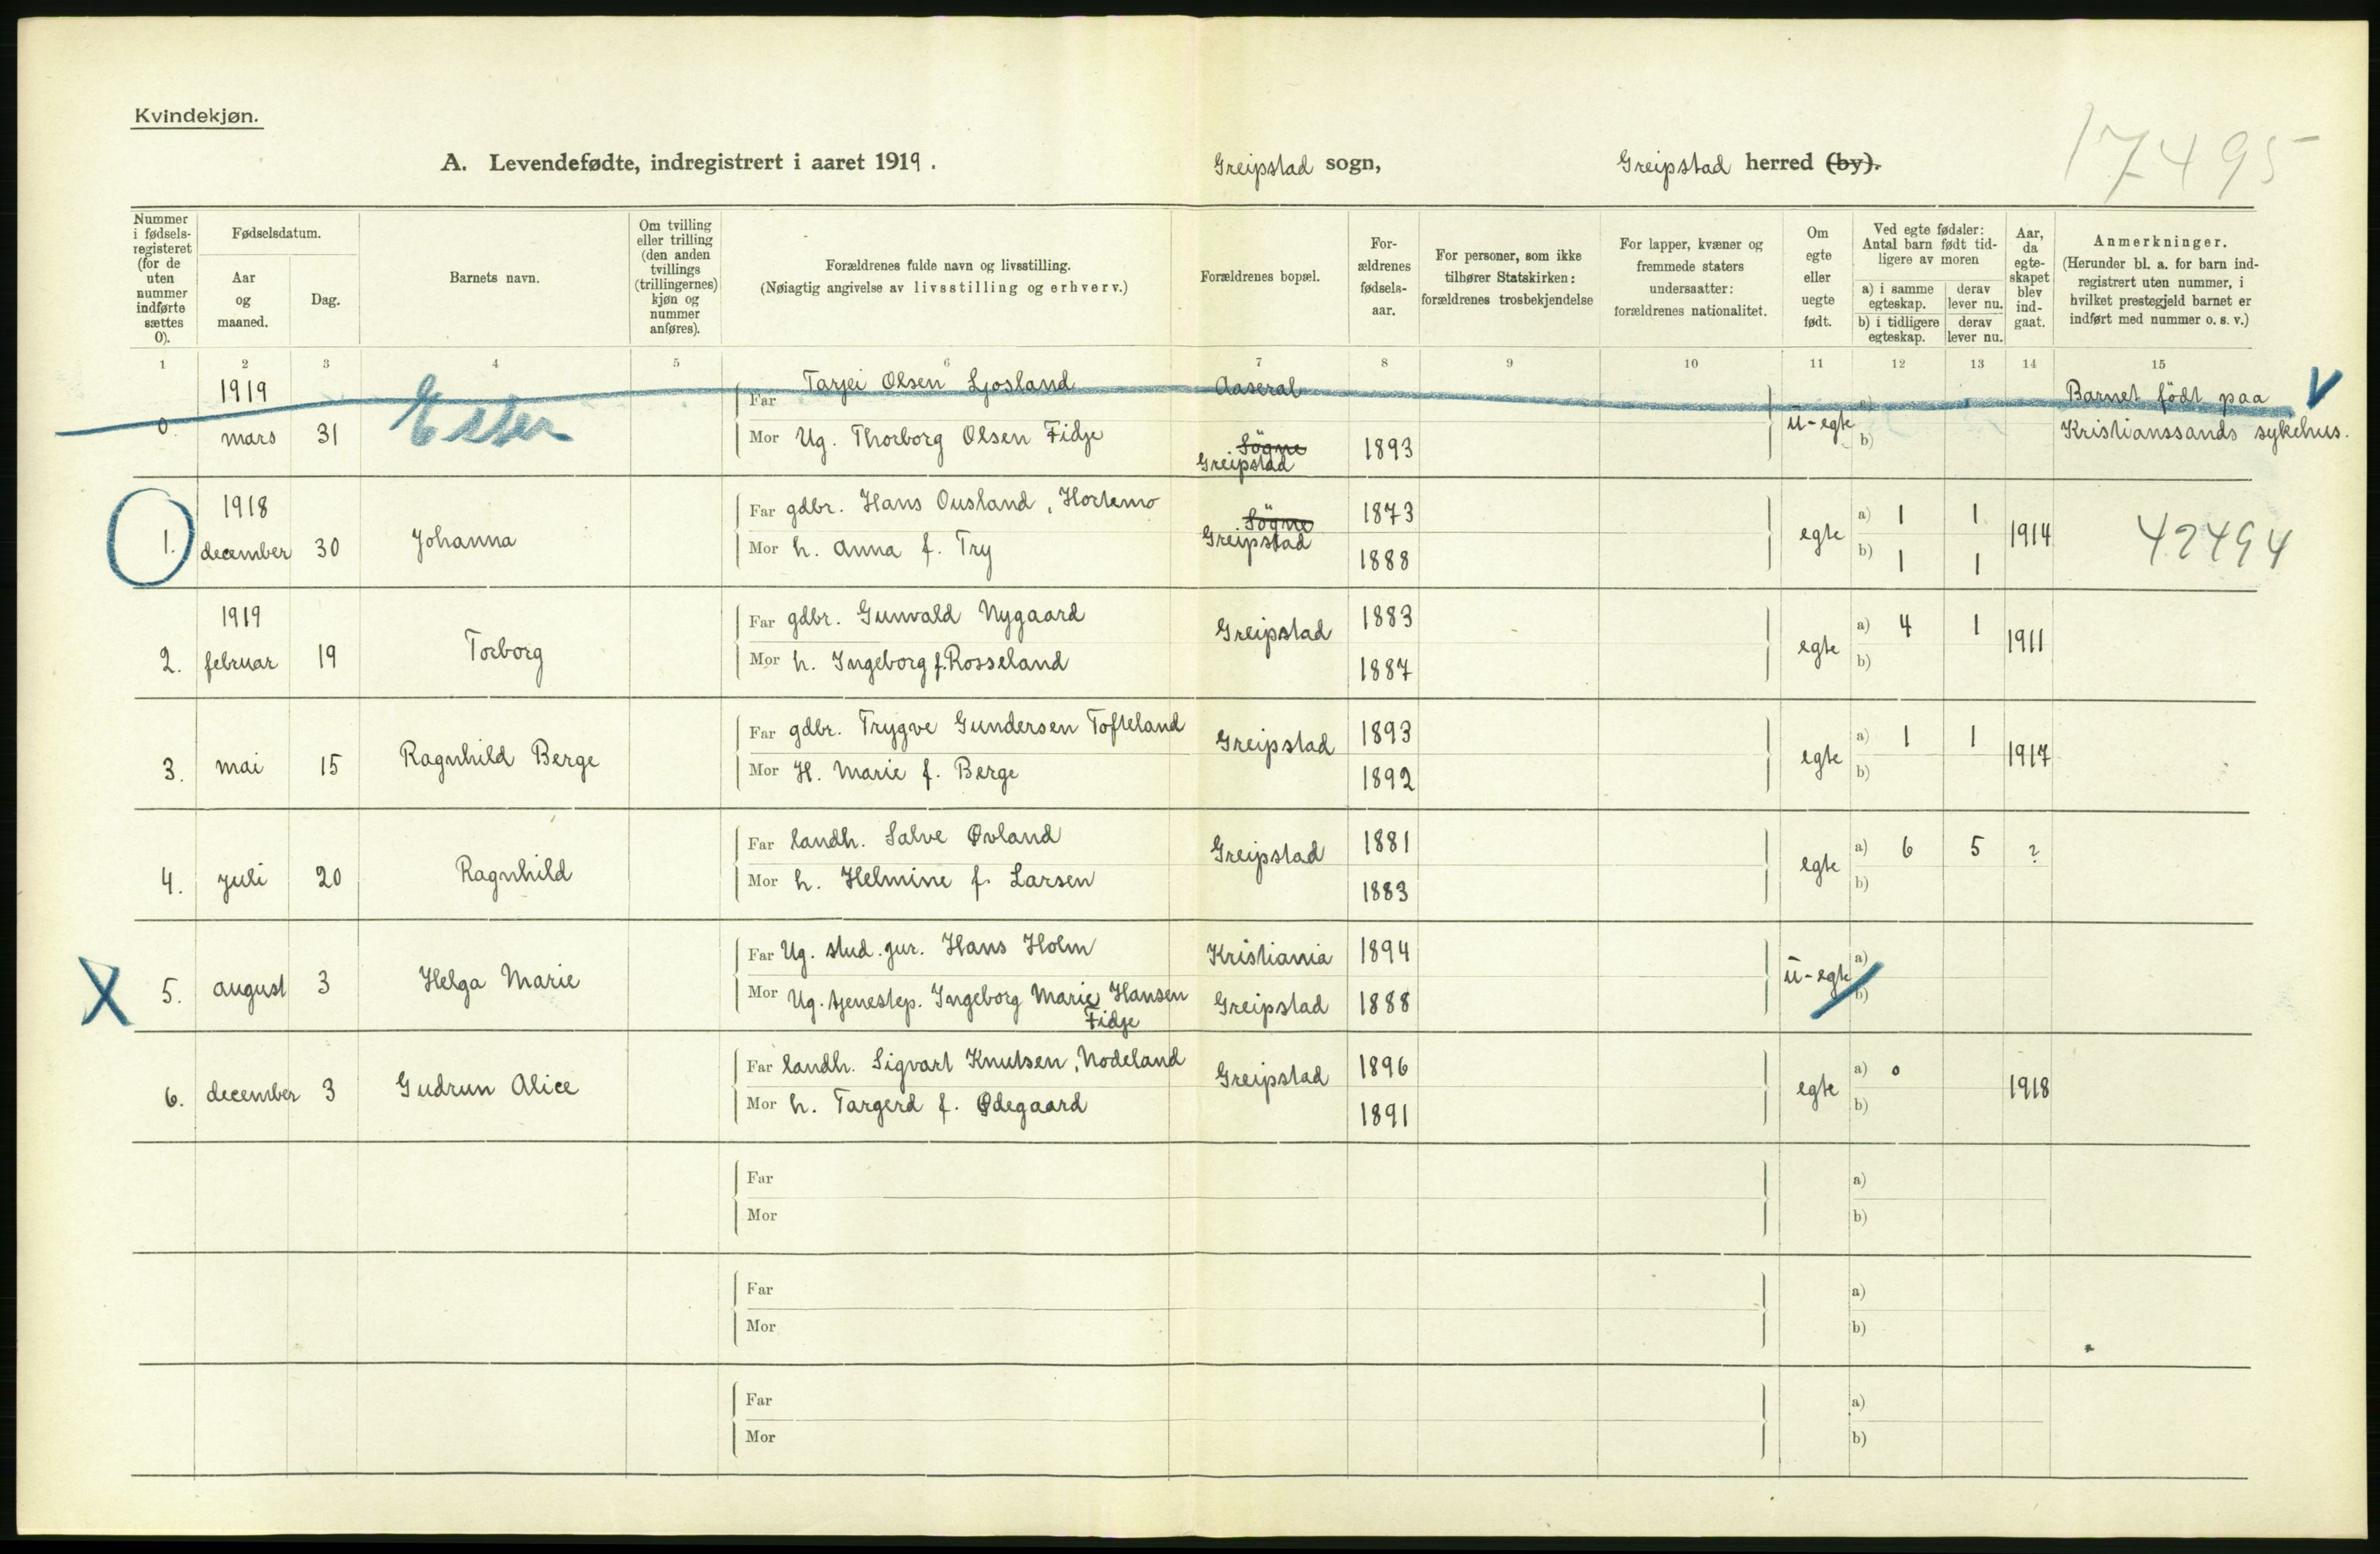 Kvindekjøn.
17495
A. Levendefødte, indregistrert i aaret 1919. Greipstad sogn, Greipstad herred (by).
Nummer i fødselsregisteret (for de uten nummer indførte sættes 0).
Fødselsdatum.
Aar og maaned.
Dag.
Barnets navn.
Om tvilling eller trilling (den anden tvillings (trillingernes) kjøn og nummer anføres).
Forældrenes fulde navn og livsstilling.
(Nøiagtig angivelse av livsstilling og erhverv.)
Forældrenes bopæl.
For-
ældrenes
fødsels-
aar.
For personer, som ikke
tilhører Statskirken:
forældrenes trosbekjendelse
For lapper, kvæner og
fremmede staters
undersaatter:
forældrenes nationalitet.
Om
egte
eller
uegte
født.
Ved egte fødsler:
Antal barn født tid-
ligere av moren
a) i samme egteskap.
derav lever nu.
b) i tidligere egteskap.
derav lever nu.
Aar,
da
egte-
skapet
blev
ind-
gaat.
Anmerkninger.
(Herunder bl. a. for barn ind-
registrert uten nummer, i
hvilket prestegjeld barnet er
indført med nummer o. s. v.)
1 2 3 4 5 6 7 8 9 10 11 12 13 14 15
1919 Far Tarjei Olsen Ljosland Aaseral a) Barnet födt paa
0. mars 31 Mor Ug. Thorborg Olsen Fidje Sögne Greipstad 1893 u-egte b) Kristianssands sykehus.
1918 Far gdbr. Hans Ousland, Hortemo Sögne 1873 a) 1 1
1. december 30 Johanna Mor h. Anna f. Try Greipstad 1888 egte b) 1 1 1914 42494
1919 Far gdbr. Gunvald Nygaard Greipstad 1883 a) 4 1
2. februar 19 Torborg Mor h. Ingeborg f. Rosseland 1887 egte b) 1911
Far gdbr. Trygve Gundersen Tofteland Greipstad 1893 a) 1 1
3. mai 15 Ragnhild Berge Mor H. Marie f. Berge 1892 egte b) 1917
Far landh. Salve Øvland Greipstad 1881 a) 6 5 ?
4. juli 20 Ragnhild Mor h. Helmine f. Larsen 1883 egte b)
Far Ug. stud. jur. Hans Holm Kristiania 1894 a)
X 5. august 3 Helga Marie Mor Ug. tjenestep. Ingeborg Marie Hansen Fidje Greipstad 1888 u-egte b)
Far landh. Sigvart Knutsen, Nodeland Greipstad 1896 a) 0
6. december 3 Gudrun Alice Mor h. Targerd f. Ødegaard 1891 egte b) 1918
Far a)
Mor b)
Far a)
Mor b)
Far a)
Mor b)